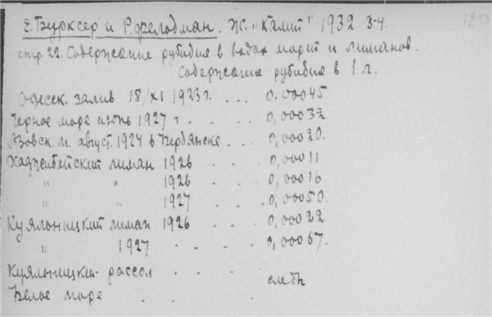 Е. Бурксер и Р. Фельдман. Ж. "Калий" 1932. 3-4. 180
стр. 22. Содержание рубидия в водах морей и лиманов.
Содержание рубидия в 1 л.
Одесск. залив 18/XI 1923 г. . . . 0.00045
Черное море июнь 1927 г. . . . 0,00032
Азовск. м. август. 1924 в Бердянске . . . 0,00020.
Хаджибейский лиман 1926 . . . 0,00011
" " 1926 . . . 0,00016
" " 1927 . . . 0,00050.
Куяльницкий лиман 1926 . . . 0,00022
" 1927 . . . . 0,00067.
Куяльницкий рассол . . . .
следы
Белое море . . .